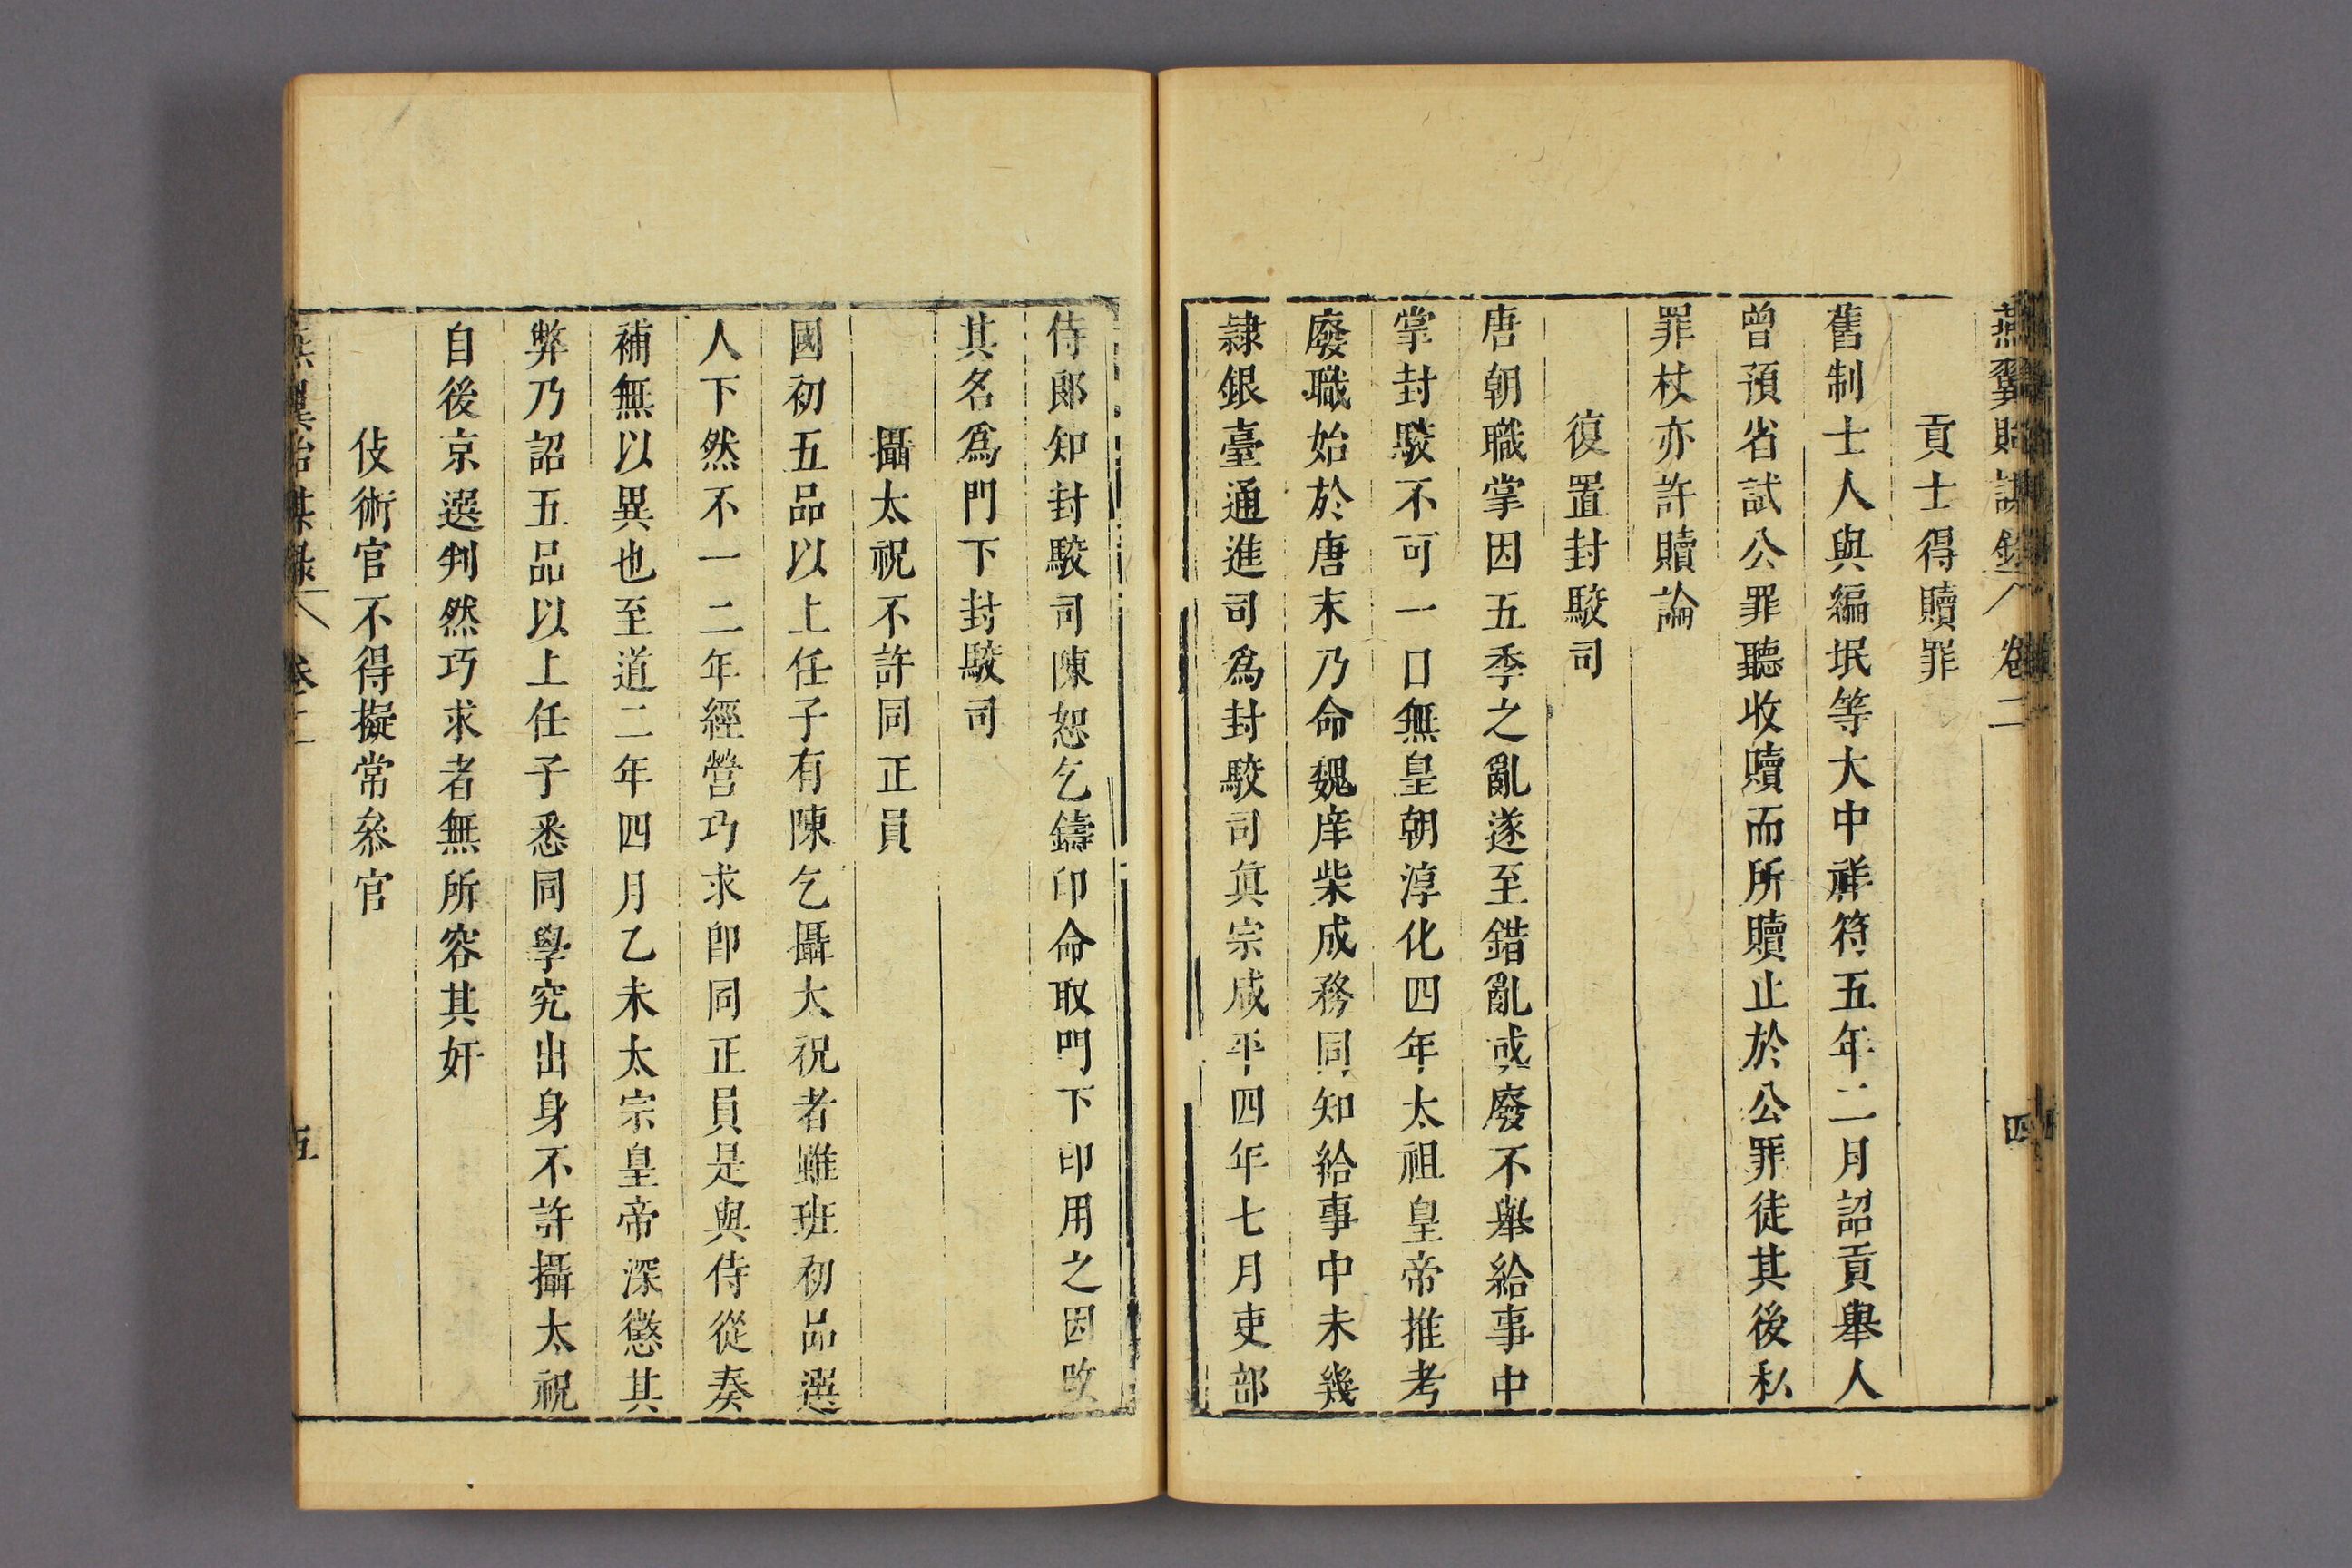 燕翼貽謀錄 卷二 四
貢士得贖罪
舊制士人與編氓等大中祥符五年二月詔貢舉人
曾預省試公罪聽收贖而所贖止於公罪徒其後私
罪杖亦許贖論
復置封駮司
唐朝職掌因五季之亂遂至錯亂或廢不舉給事中
掌封駮不可一日無皇朝淳化四年太祖皇帝推考
廢職始於唐末乃命魏庠柴成務同知給事中未幾
隷銀臺通進司爲封駮司眞宗咸平四年七月吏部
侍郎知封駮司陳恕乞鑄印命取門下印用之因改
其名爲門下封駮司
攝太祝不許同正員
國初五品以上任子有陳乞攝太祝者雖班初品選
人下然不一二年經營巧求卽同正員是與侍從奏
補無以異也至道二年四月乙未太宗皇帝深懲其
弊乃詔五品以上任子悉同學究出身不許攝太祝
自後京選判然巧求者無所容其奸
伎術官不得擬常叅官
燕翼貽謀錄 卷二 五